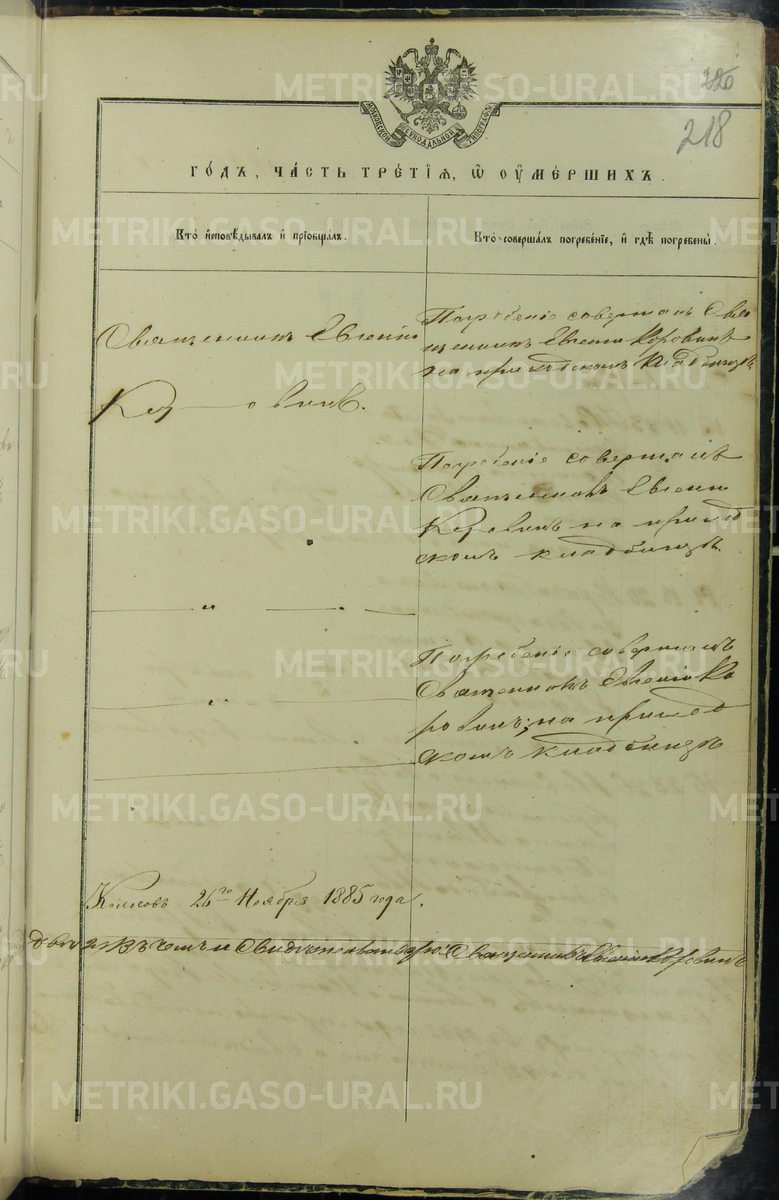 226
218
МОСКОВСКОЙ СѴНОДАЛЬНОЙ ТИПОГРАФІИ
ГО́ДЪ, ЧА́СТЬ ТРЕ́ТІЯ, Ѡ ОУМЕ́РШИХЪ.
Кто̀ и҆сповѣ́дывалъ и҆ пріобща́лъ.
Кто̀ соверша́лъ погребе́ніе, и҆ гдѣ̀ погребены̀.
Священникъ Евгеній
Коровинъ.
Погребеніе совершалъ Свя
щенникъ Евгеній Коровинъ
на приходскомъ кладбищѣ
Погребеніе совершалъ
Священникъ Евгеній
Коровинъ на приход
скомъ кладбищѣ.
Погребеніе совершалъ
Священникъ Евгеній Ко
ровинъ, на приход
скомъ кладбищѣ
Колосовъ 26го Ноября 1885 года.
въ чемъ и свидѣтельствую: Священникъ Евгеній Коровинъ
METRIKI.GASO-URAL.RU